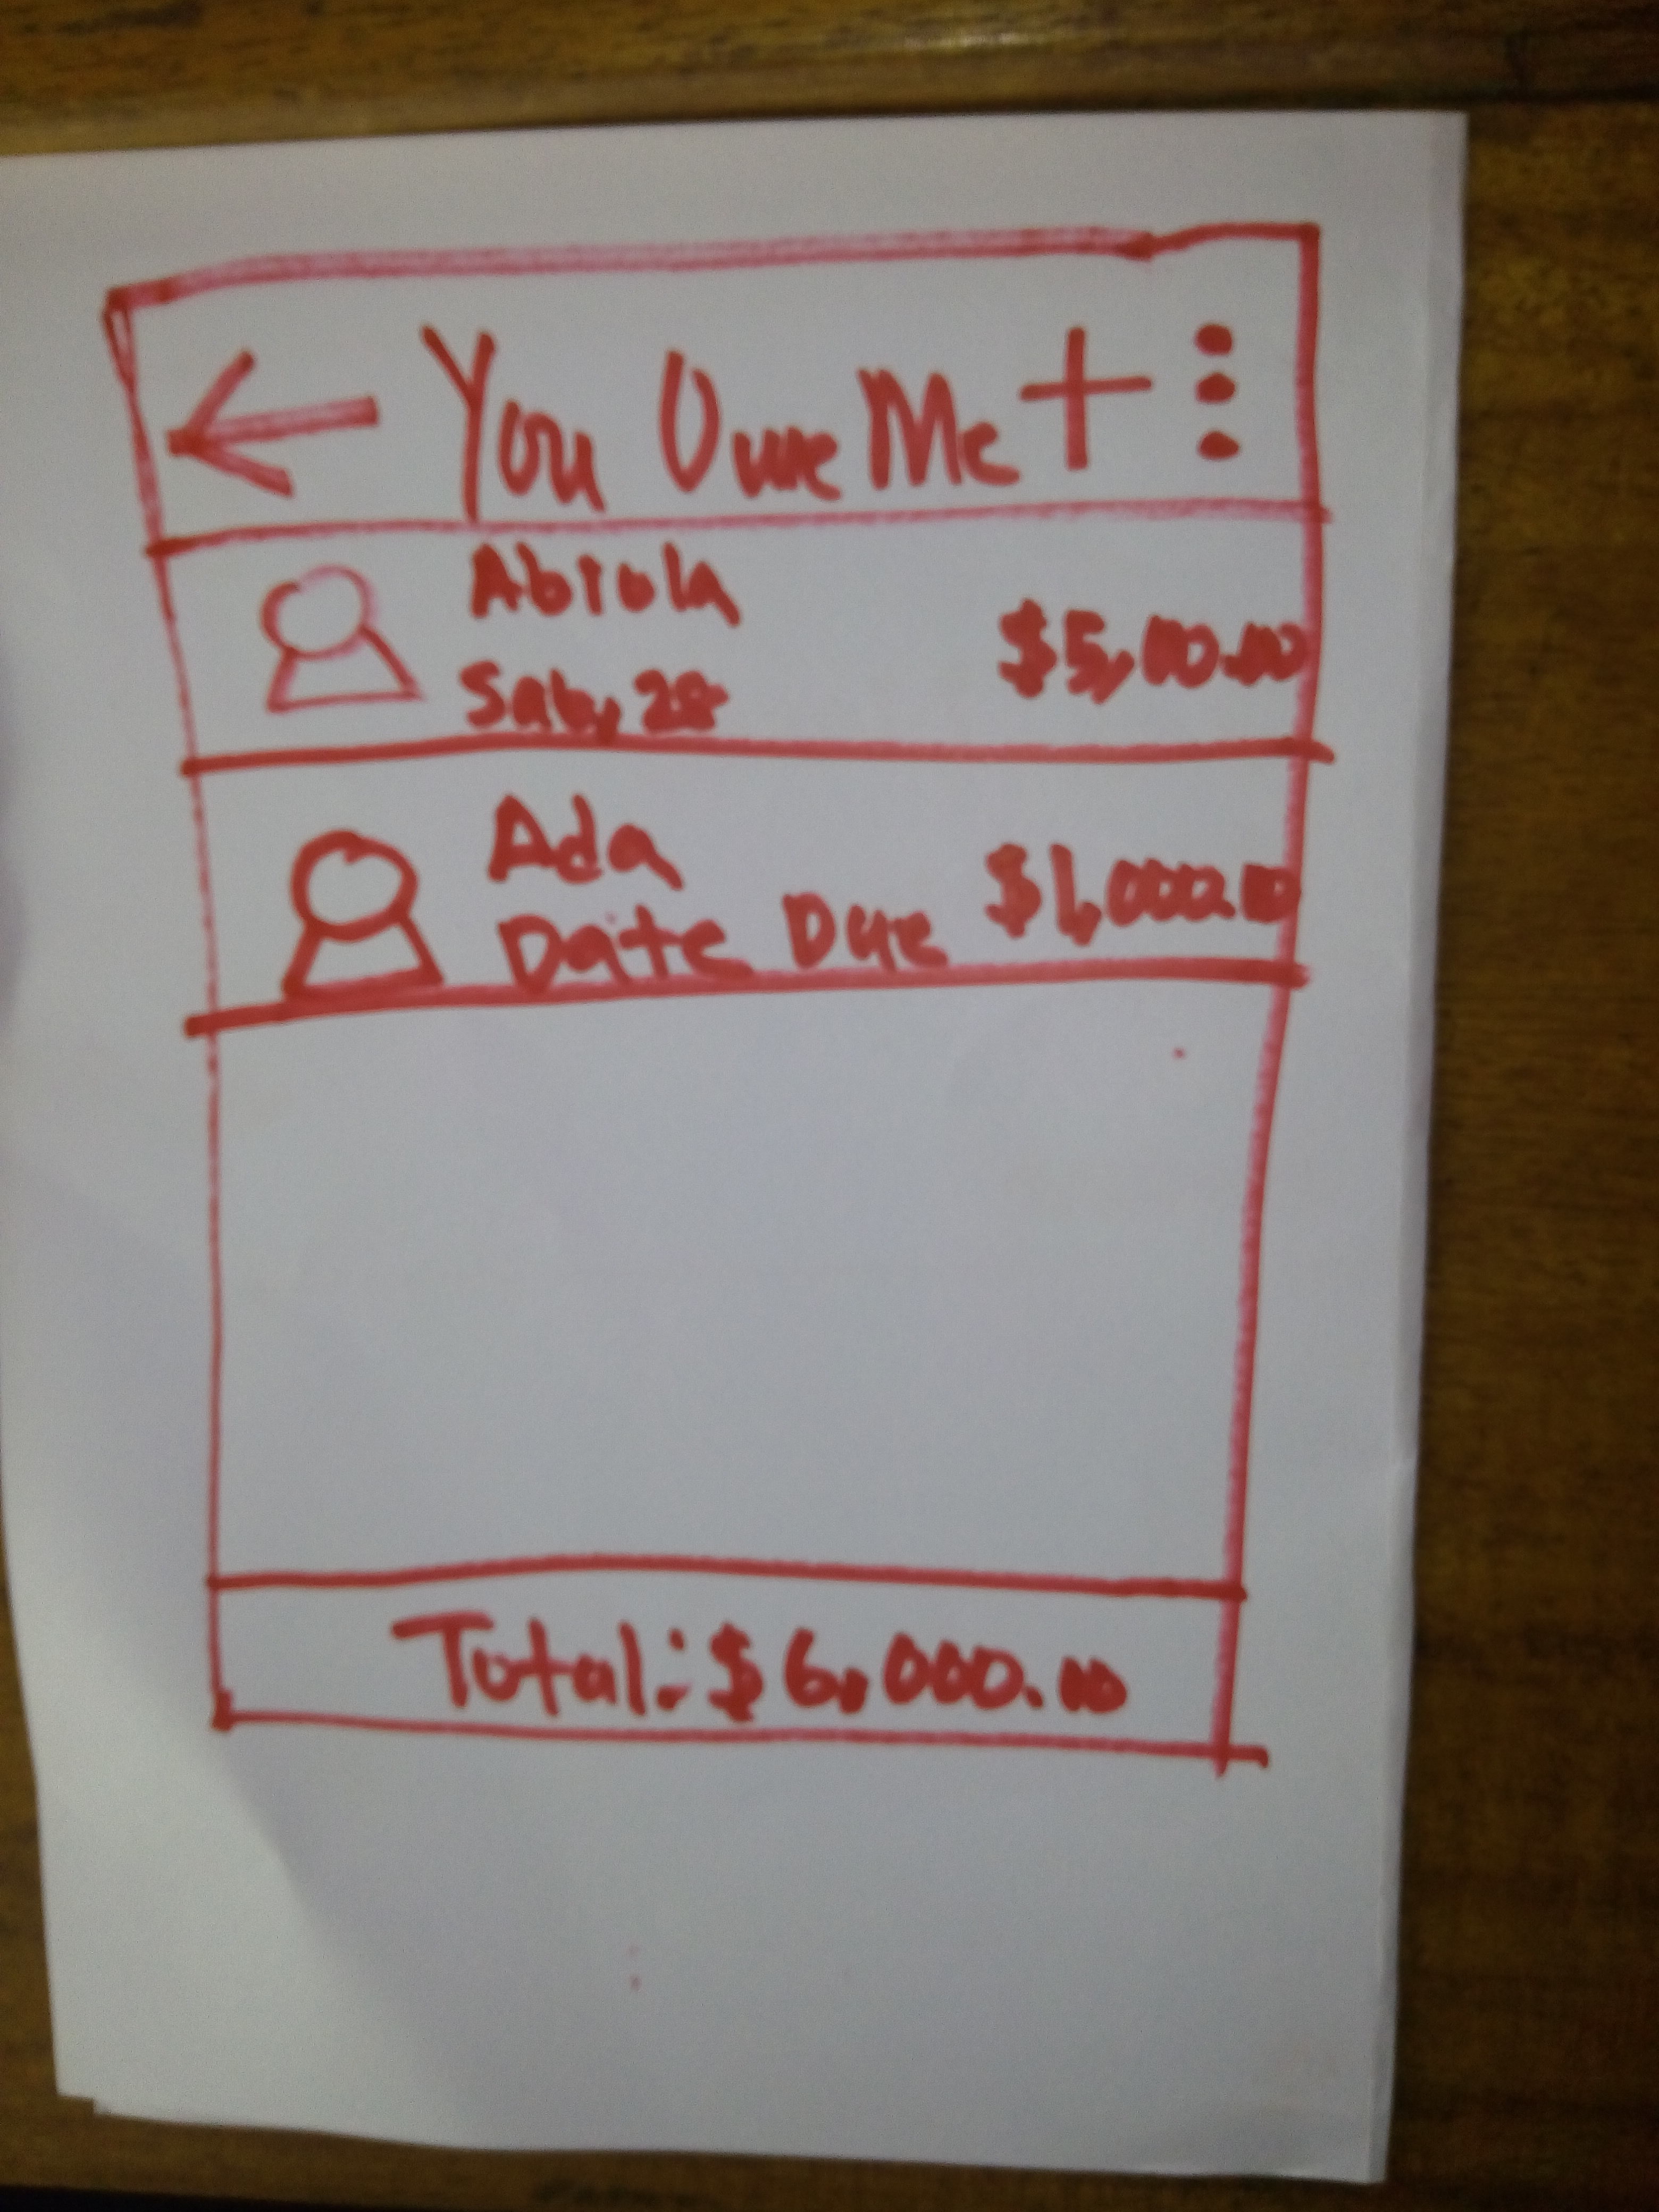 You Owe Me +
Abiola
Sat, 28
$5,000.00
Ada
Date Due
$1,000.00
Total: $6,000.00